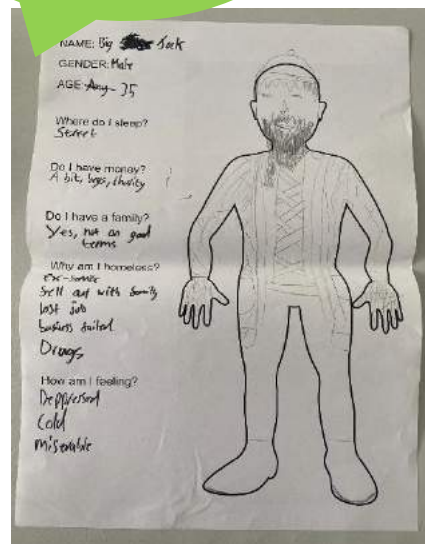 NAME: Big Jack
GENDER: Male
AGE: 35
Where do I sleep?
Street
Do I have money?
A bit, begs, charity
Do I have a family?
Yes, not on good
terms
Why am I homeless?
fell out with family
lost job
business failed
Drugs
How am I feeling?
Deppressed
Cold
miserable